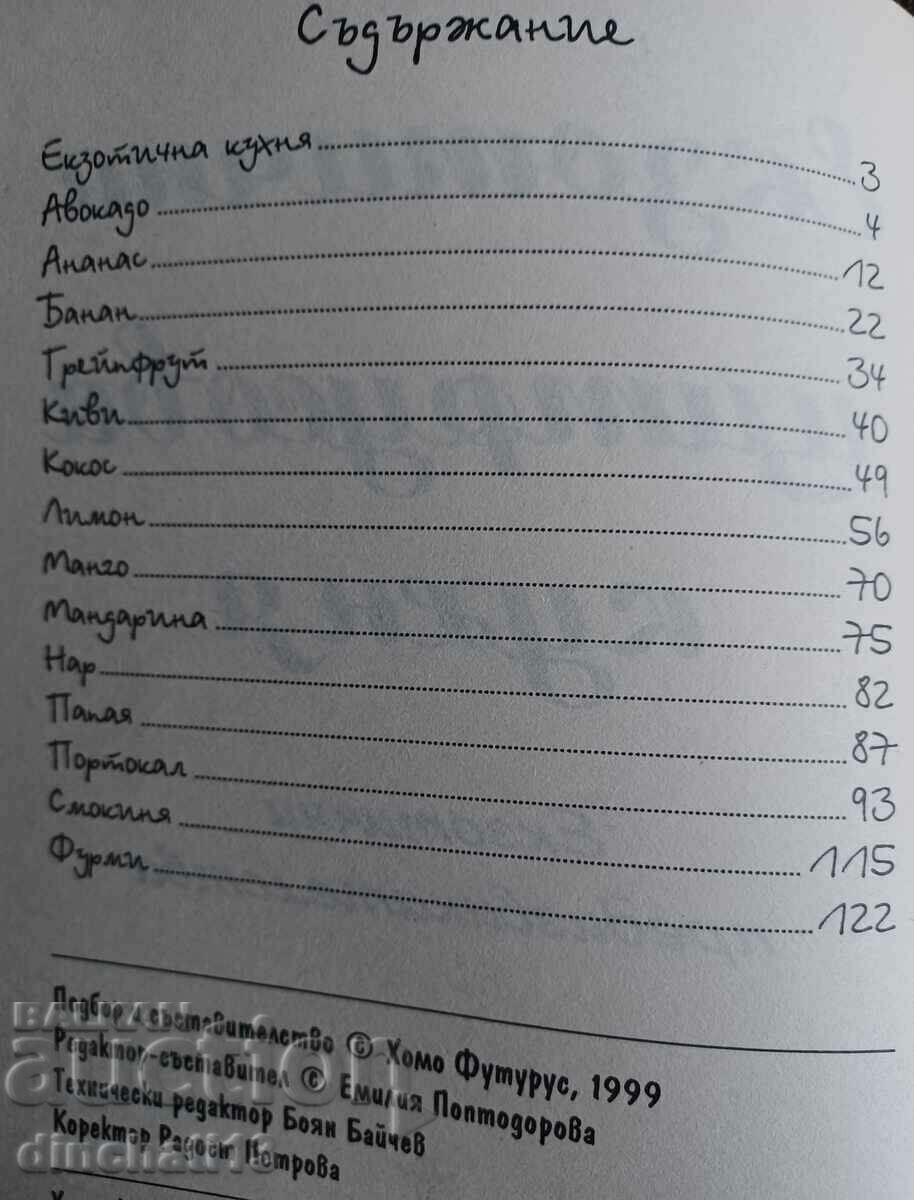 Съдържание
Екзотична кухня 3
Авокадо 4
Ананас 12
Банан 22
Грейпфрут 34
Киви 40
Кокос 49
Лимон 56
Манго 70
Мандарина 75
Нар 82
Папая 87
Портокал 93
Смокиня 115
Фурми 122
Подбор и съставителство © Хомо Футурус, 1999
Редактор-съставител © Емилия Поптодорова
Технически редактор Боян Байчев
Коректор Радост Петрова
BALKAN
auction
dinchati13